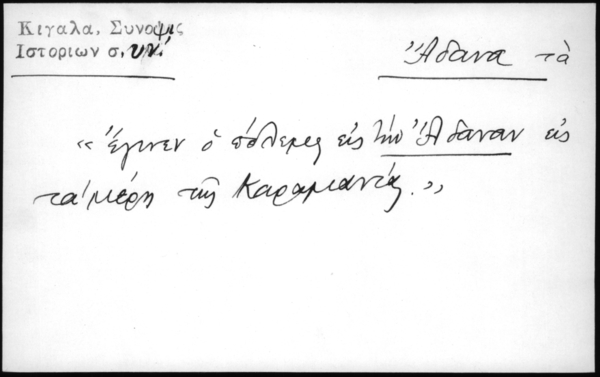 Κιγαλα, Συνοψις
Ιστοριων σ, υν.'
Ἄδανα τὰ
« Ἔγινεν ὁ πόλεμος εἰς τὴν Ἄδαναν εἰς
τὰ μέρη τῆς Καραμανίας.»